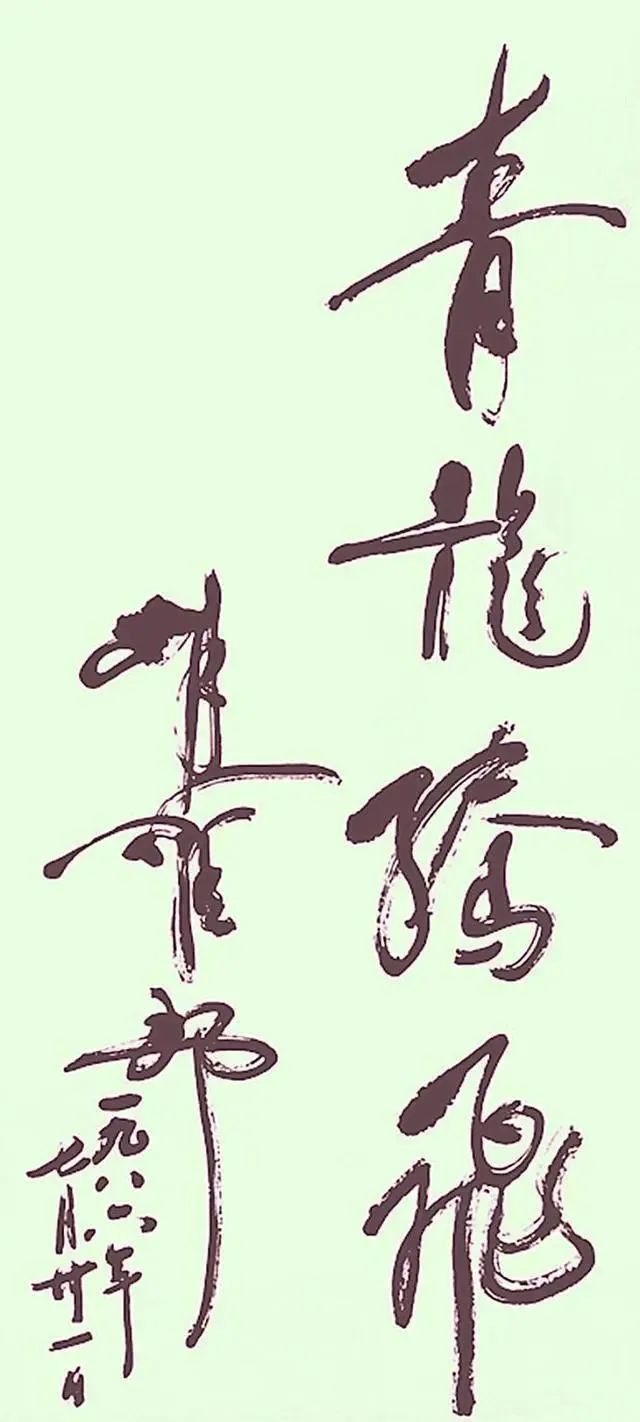 青龍騰飛
一九八六年
七月廿一日